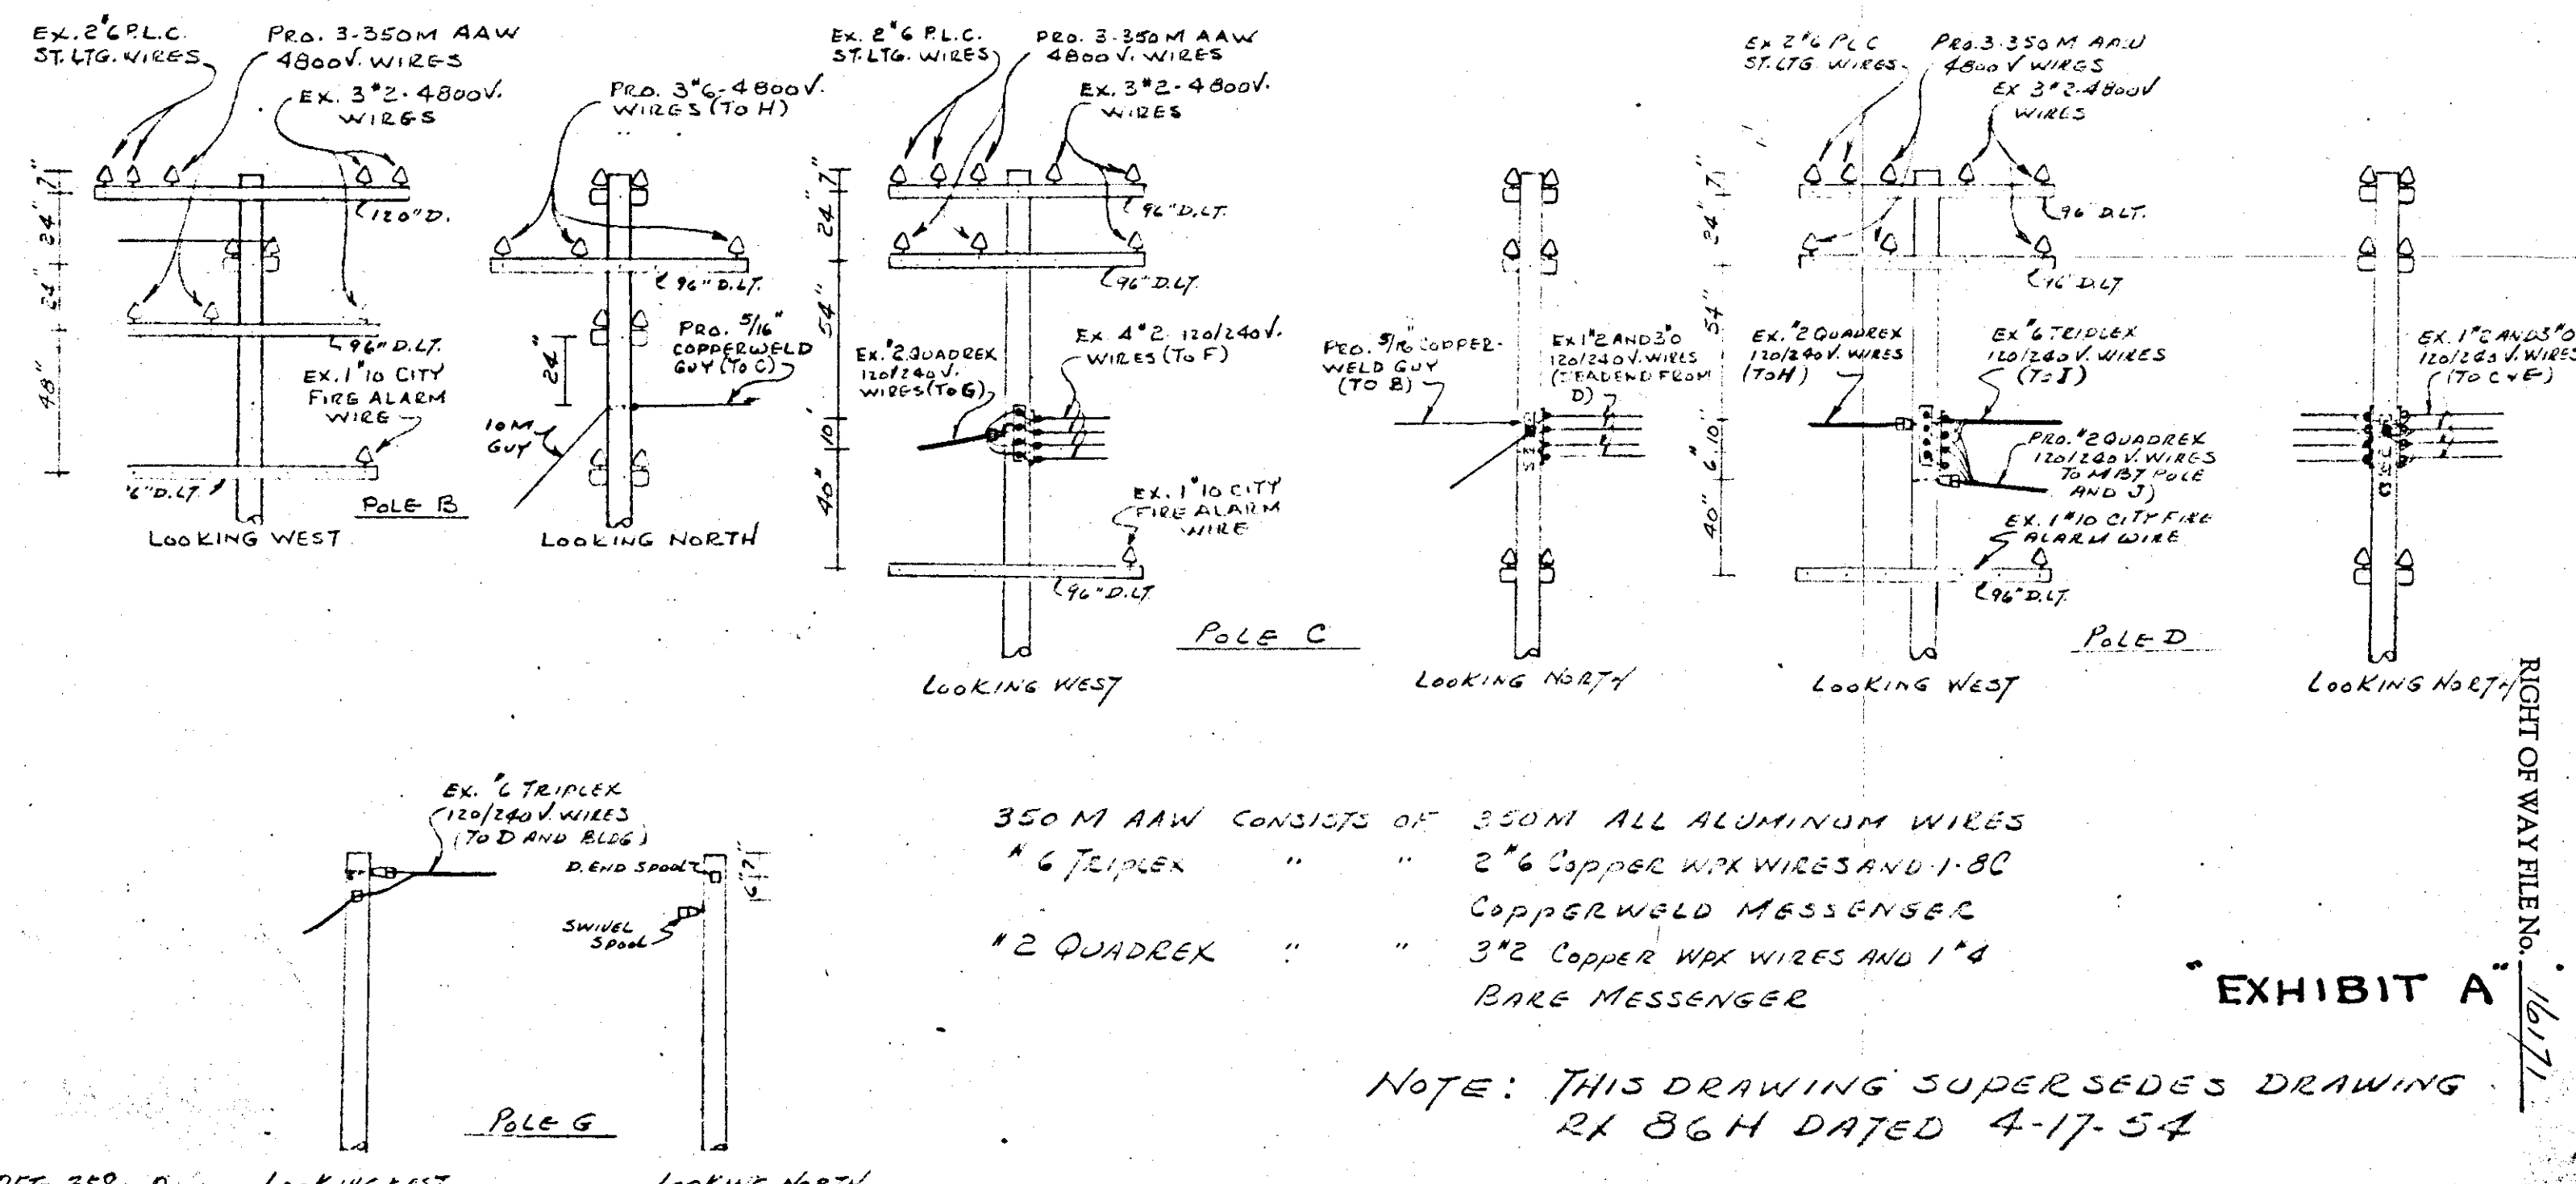 Ex. 2#6 P.L.C.
ST. LTG. WIRES
PRO. 3-350M AAW
4800V. WIRES
EX. 3#2-4800V.
WIRES
7"
24"
24"
48"
120" D.
96" D.LT.
EX. 1#10 CITY
FIRE ALARM
WIRE
6" D.LT.
POLE B
LOOKING WEST
PRO. 3#6-4800V.
WIRES (TO H)
96" D.LT.
24"
PRO. 5/16"
COPPERWELD
GUY (TO C)
10M
GUY
LOOKING NORTH
Ex. 2#6 P.L.C.
ST. LTG. WIRES
PRO. 3-350M AAW
4800V. WIRES
EX. 3#2-4800V.
WIRES
7"
24"
54"
10
40"
96" D.LT.
96" D.LT.
EX. #2 QUADREX
120/240V.
WIRES (TO G)
EX. 4#2 120/240V.
WIRES (TO F)
EX. 1#10 CITY
FIRE ALARM
WIRE
96" D.LT.
POLE C
LOOKING WEST
PRO. 5/16 COPPER-
WELD GUY
(TO B)
EX 1#2 AND 3#0
120/240V. WIRES
(DEADEND FROM
D)
LOOKING NORTH
EX 2#6 PLC
ST. LTG WIRES
PRO. 3-350M AAW
4800V WIRES
EX 3#2-4800V
WIRES
7"
24"
54"
6" 10"
40"
96" D.LT.
96" D.LT
EX. #2 QUADREX
120/240V. WIRES
(TO H)
EX #6 TRIPLEX
120/240V. WIRES
(TO I)
PRO. #2 QUADREX
120/240V. WIRES
TO MBT POLE
AND J)
EX. 1#10 CITY FIRE
ALARM WIRE
96" D.LT.
POLE D
LOOKING WEST
EX. 1#2 AND 3#0
120/240V. WIRES
(TO C & E)
LOOKING NORTH
RIGHT OF WAY FILE No. 16171
EX. #6 TRIPLEX
120/240V. WIRES
(TO D AND BLDG)
D. END SPOOL
SWIVEL
SPOOL
POLE G
LOOKING WEST
LOOKING NORTH
350 M AAW CONSISTS OF 350M ALL ALUMINUM WIRES
#6 TRIPLEX " " 2#6 COPPER WPX WIRES AND 1-8C
COPPERWELD MESSENGER
#2 QUADREX " " 3#2 COPPER WPX WIRES AND 1#4
BARE MESSENGER
"EXHIBIT A"
NOTE: THIS DRAWING SUPERSEDES DRAWING
RX 86H DATED 4-17-54